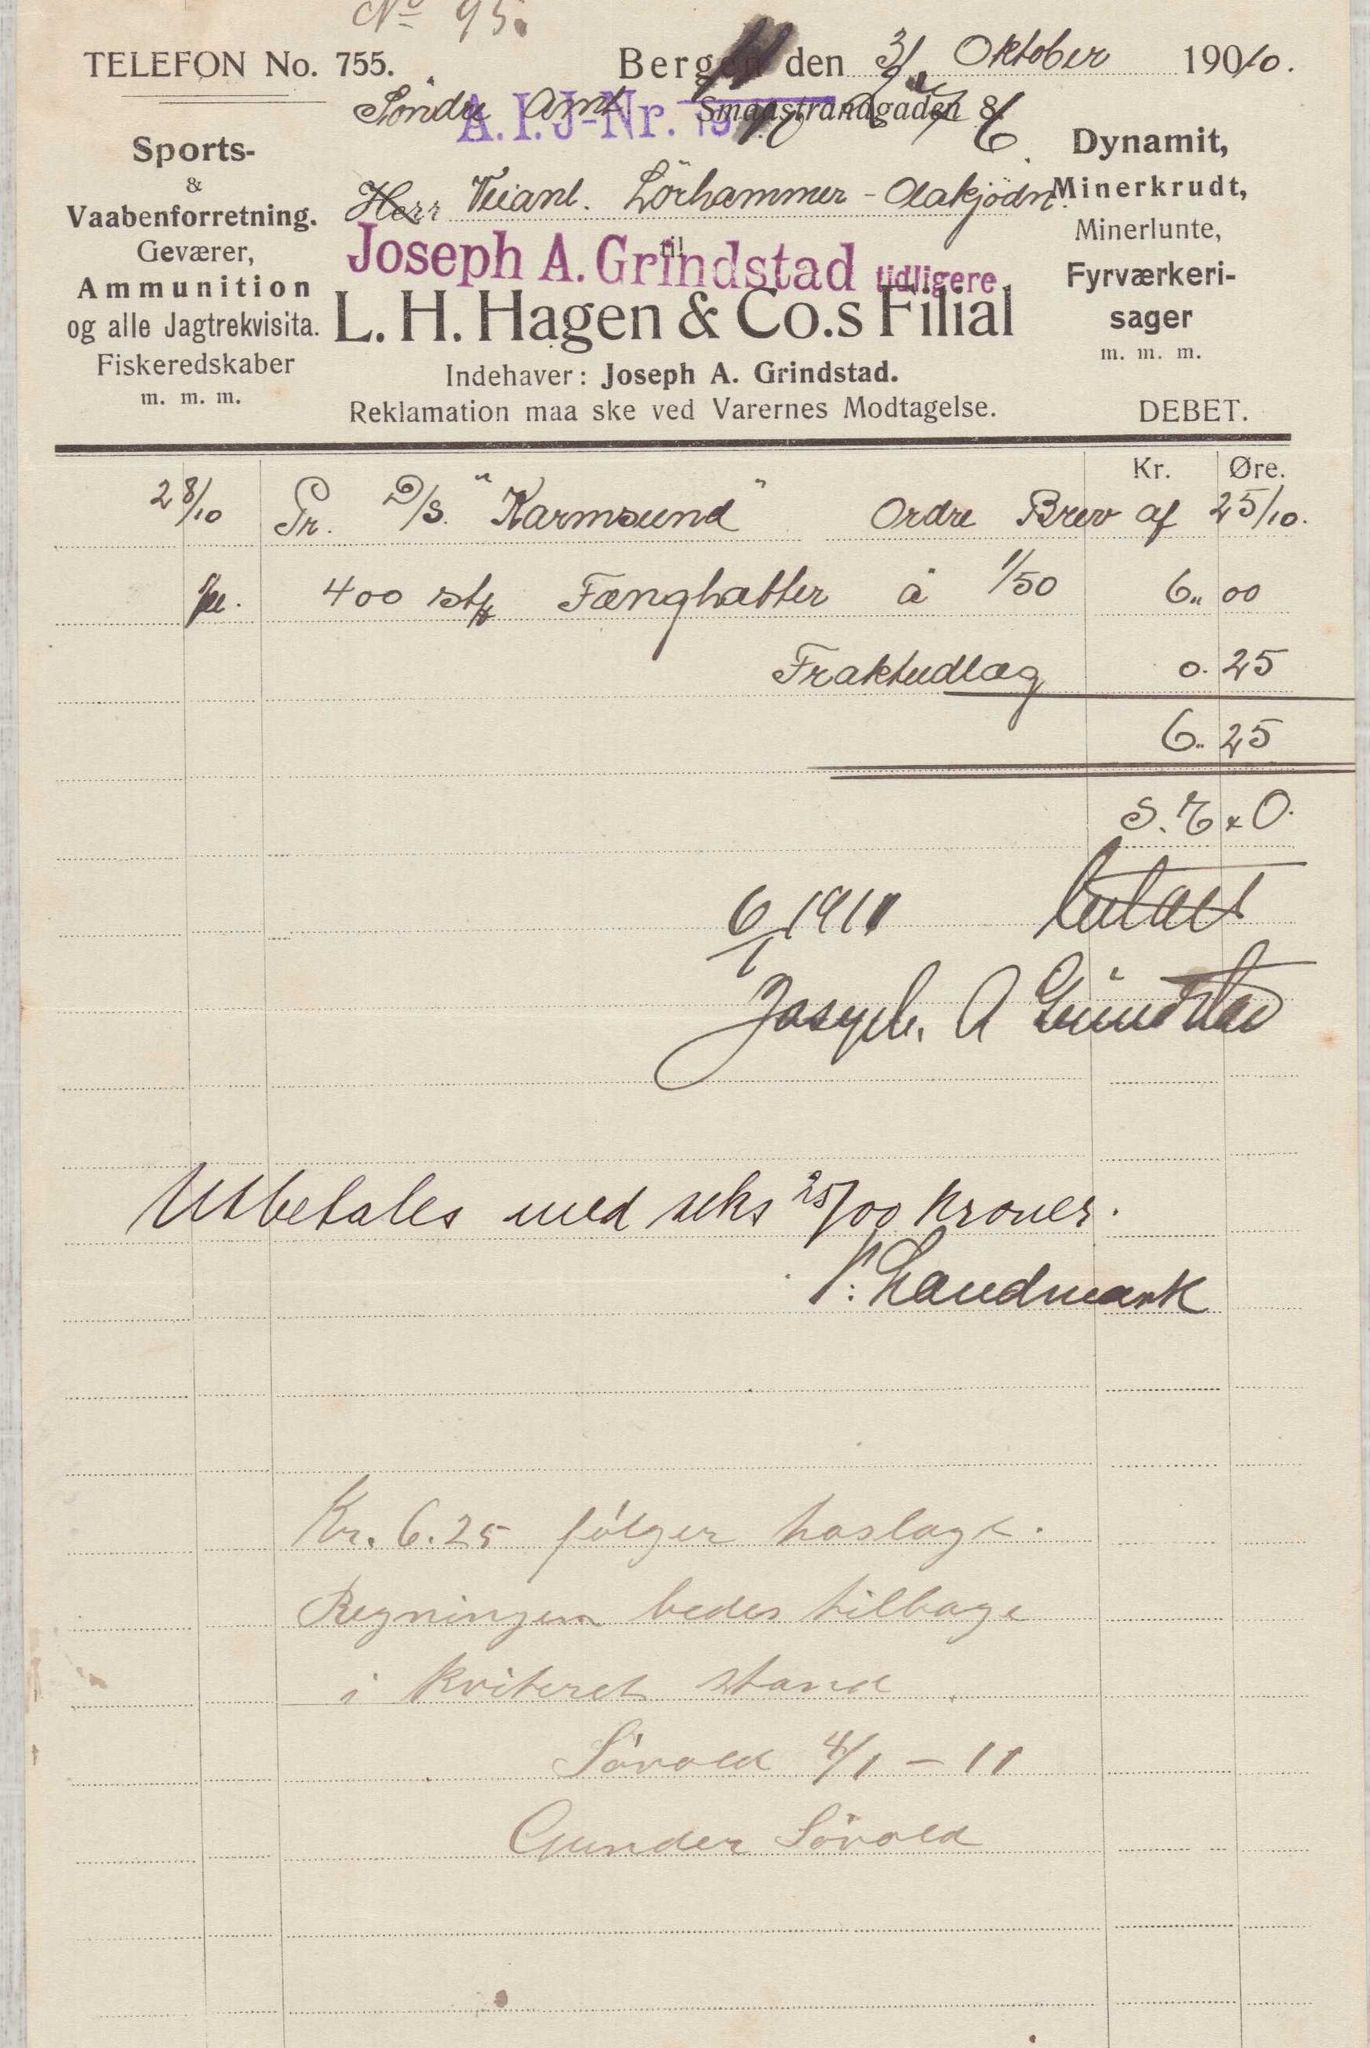 No 95.
TELEFON No. 755.
Bergen den 31 Oktober 1910.
Söndre Amt
A. I. J-Nr.
Smaastrandgaden 8.
Sports-
&
Vaabenforretning.
Geværer,
Ammunition
og alle Jagtrekvisita.
Fiskeredskaber
m. m. m.
Herr Veianl. Lörhammer - Olakjödn.
til
Joseph A. Grindstad tidligere
L. H. Hagen & Co.s Filial
Indehaver: Joseph A. Grindstad.
Reklamation maa ske ved Varernes Modtagelse.
Dynamit,
Minerkrudt,
Minerlunte,
Fyrværkeri-
sager
m. m. m.
DEBET.
Kr. Øre.
28/10 Pr. D/S. "Karmsund" Ordre Brev af 25/10.
400 stk Fænghætter à 1/50 6,, 00
Fraktudlæg 0. 25
6.. 25
S. E & O.
6/1 1911 betalt
Joseph. A Grindstad
Utbetales med seks 25/100 kroner.
Landmark
Kr. 6.25 følger hoslagt.
Regningen bedes tilbage
i kviteret stand.
Sövold 4/1 - 11
Gunder Sövold